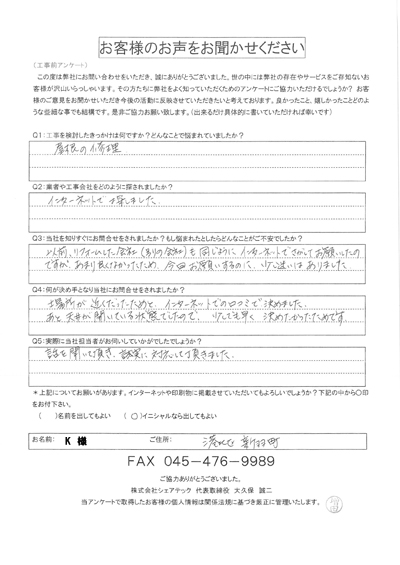 お客様のお声をお聞かせください
（工事前アンケート）
この度は弊社にお問い合わせをいただき、誠にありがとうございました。世の中には弊社の存在やサービスをご存知ないお
客様が沢山いらっしゃいます。その方たちに弊社をよく知っていただくためのアンケートにご協力いただけるでしょうか？ お客
様のご意見をお聞かせいただき今後の活動に反映させていただきたいと考えております。良かったこと、嬉しかったことどのよう
な些細な事でも結構です。是非ご協力お願いします。（出来るだけ具体的に書いていただければ幸いです）
Q1：工事を検討したきっかけは何ですか？どんなことで悩まれていましたか？
屋根の修理
Q2：業者や工事会社をどのように探されましたか？
インターネットで探しました。
Q3：当社を知りすぐにお問合せをされましたか？もし悩まれたとしたらどんなことがご不安でしたか？
以前、リフォームした会社（別の会社）も同じようにインターネットでさがしてお願いしたの
ですが、あまり良くなかったため、今回お願いするのに、少し迷いはありました。
Q4：何が決め手となり当社にお問合せをされましたか？
場所が近くだったためと、インターネットでの口コミで決めました。
あと天井が開いている状態でしたので、少しでも早く決めたかったためです。
Q5：実際に当社担当者がお伺いしていかがでしたでしょうか？
話を聞いて頂き、誠実に対応して頂きました。
＊上記についてお願いがあります。インターネットや印刷物に掲載させていただいてもよろしいでしょうか？下記の中から○印
をお付下さい。
（　）名前を出してもよい　（○）イニシャルなら出してもよい
お名前： K 様 ご住所： 港北区 新羽町
FAX 045-476-9989
ご協力ありがとうございました。
株式会社シェアテック 代表取締役 大久保 誠二
当アンケートで取得したお客様の個人情報は関係法規に基づき厳正に管理いたします。